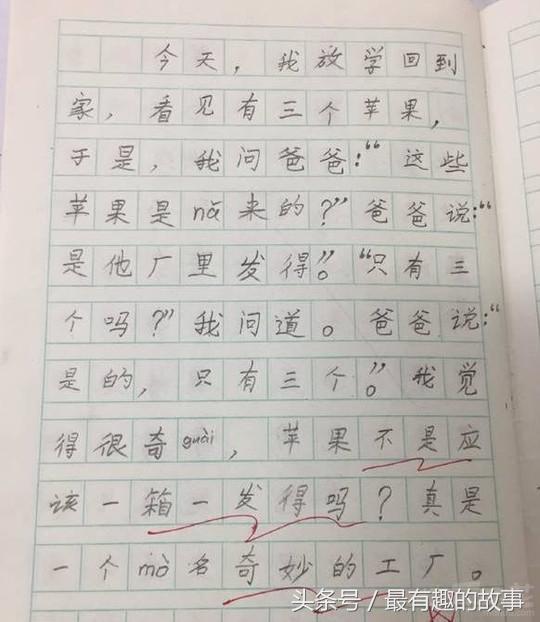 今天，我放学回到
家，看见有三个苹果，
于是，我问爸爸：“这些
苹果是nǎ来的？”爸爸说：“
是他厂里发得”。“只有三
个吗？”我问道。爸爸说：“
是的，只有三个”。我觉
得很奇guài，苹果不是应
该一箱一发得吗？真是
一个mò名奇妙的工厂。
头条号 / 最有趣的故事